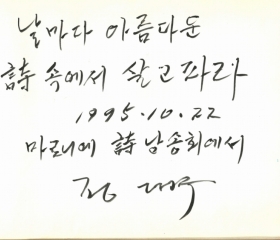 날마다 아름다운
詩 속에서 살고파라
1995.10.22
마로니에 詩 낭송회에서